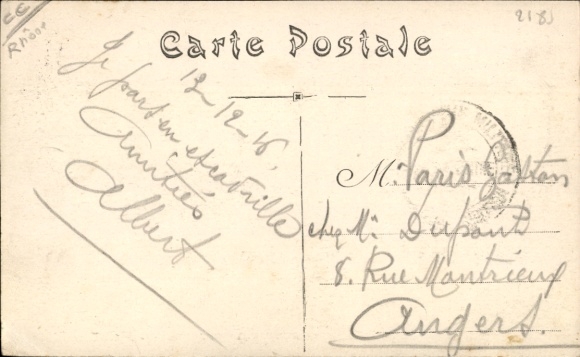 Rhône
2185
Carte Postale
12-12-16
Je pars en
Amitiés
Albert
M. Paris Gaston
chez Mr Dupont
8. Rue Montrieux
Angers.